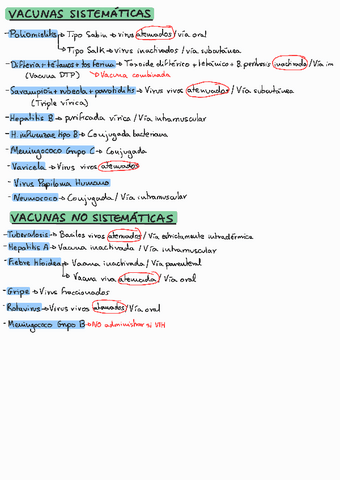 VACUNAS SISTEMÁTICAS
- Poliomielitis → Tipo Sabin → virus atenuados / Vía oral
→ Tipo Salk → virus inactivados / vía subcutánea
- Difteria + tétanos + tos ferina → Toxoide diftérico + tetánico + B. pertussis inactivada / Vía im
(Vacuna DTP) → Vacuna combinada
- Sarampión + rubeola + parotiditis → Virus vivos atenuados / Vía subcutánea
(Triple vírica)
- Hepatitis B → purificada vírica / Vía intramuscular
- H. influenzae tipo B → Conjugada bacteriana
- Meningococo Grupo C → Conjugada
- Varicela → Virus vivos atenuados
- Virus Papiloma Humano
- Neumococo → Conjugada / Vía intramuscular
VACUNAS NO SISTEMÁTICAS
- Tuberculosis → Bacilos vivos atenuados / Vía estrictamente intradérmica
- Hepatitis A → Vacuna inactivada / Vía intramuscular
- Fiebre tifoidea → Vacuna inactivada / Vía parenteral
→ Vacuna viva atenuada / Vía oral
- Gripe → Virus fraccionados
- Rotavirus → Virus vivos atenuados / Vía oral
- Meningococo Grupo B → NO administrar si VIH